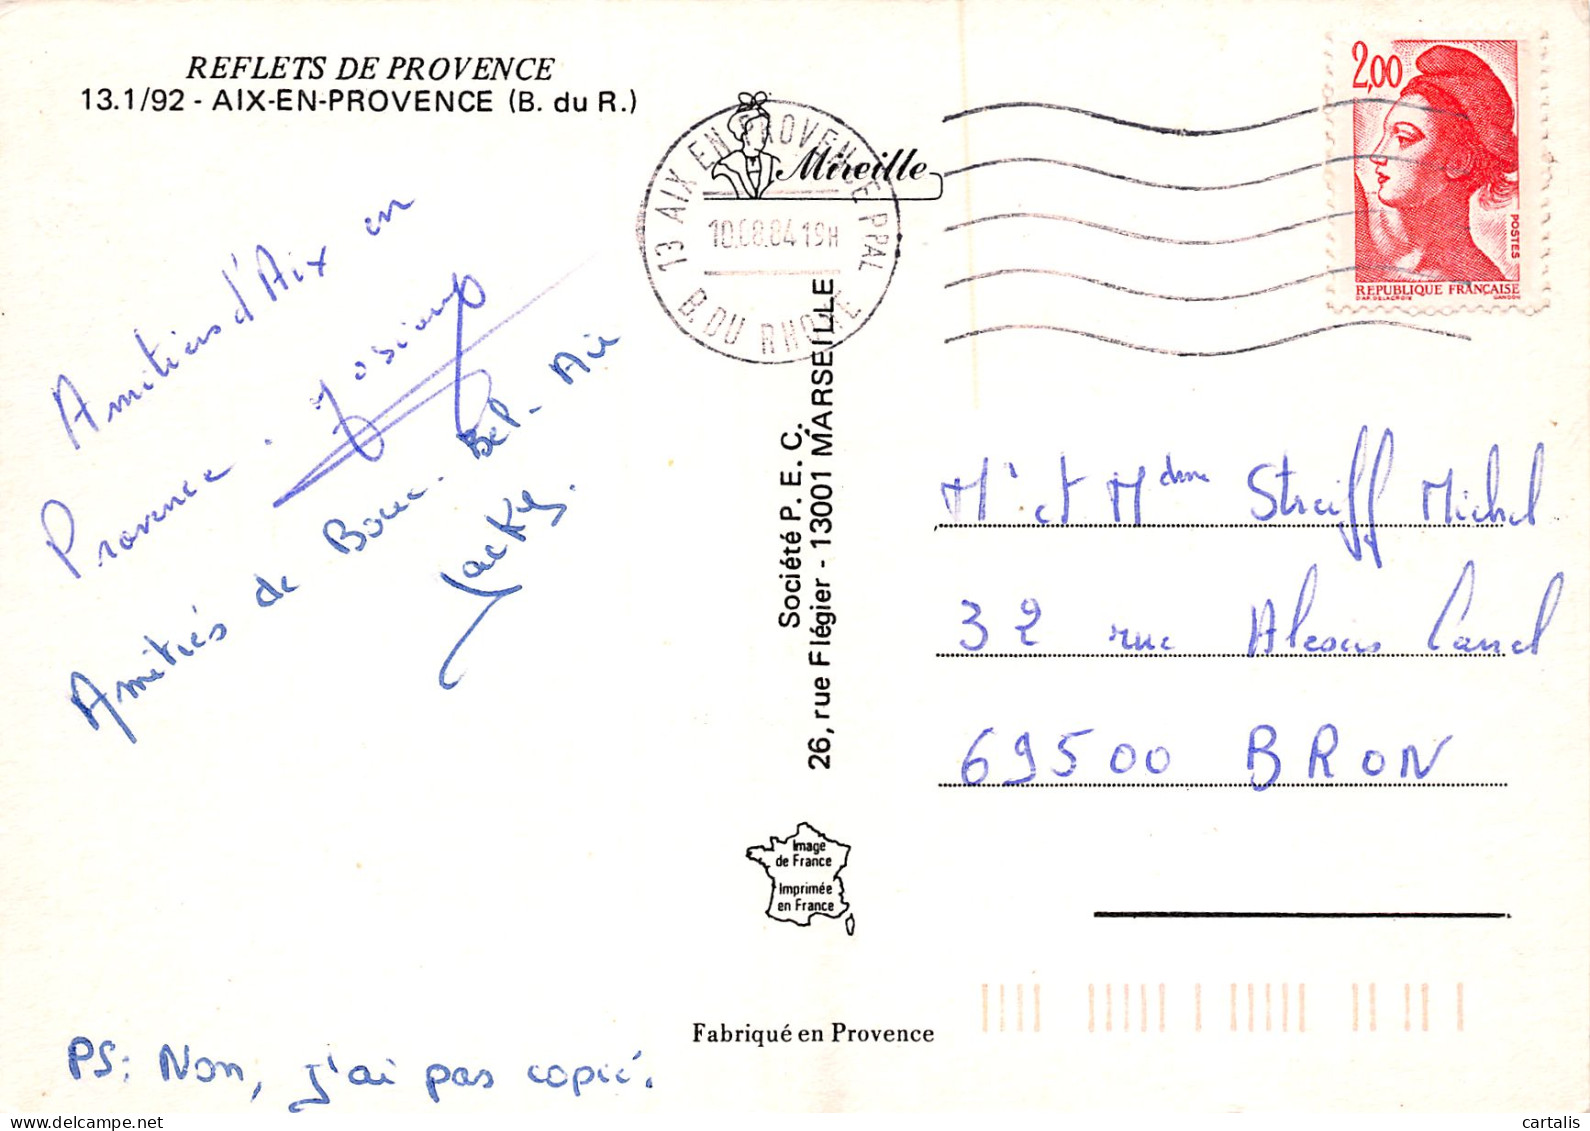 REFLETS DE PROVENCE
13.1/92 - AIX-EN-PROVENCE (B. du R.)
Amitiés d'Aix en
Provence.
Amitiés de Bouc-Bel-Air
Jacky.
PS: Non, j'ai pas copié.
13 AIX EN PROVENCE PPAL
10.08.84 19H
B. DU RHONE
Mireille
2,00
POSTES
REPUBLIQUE FRANÇAISE
D'AP. DELACROIX GANDON
Société P. E. C.
26, rue Flégier - 13001 MARSEILLE
Mr et Mdme Streiff Michel
32 rue Alexis
69500 BRON
Image
de France
Imprimée
en France
Fabriqué en Provence
© cartalis
delcampe.net